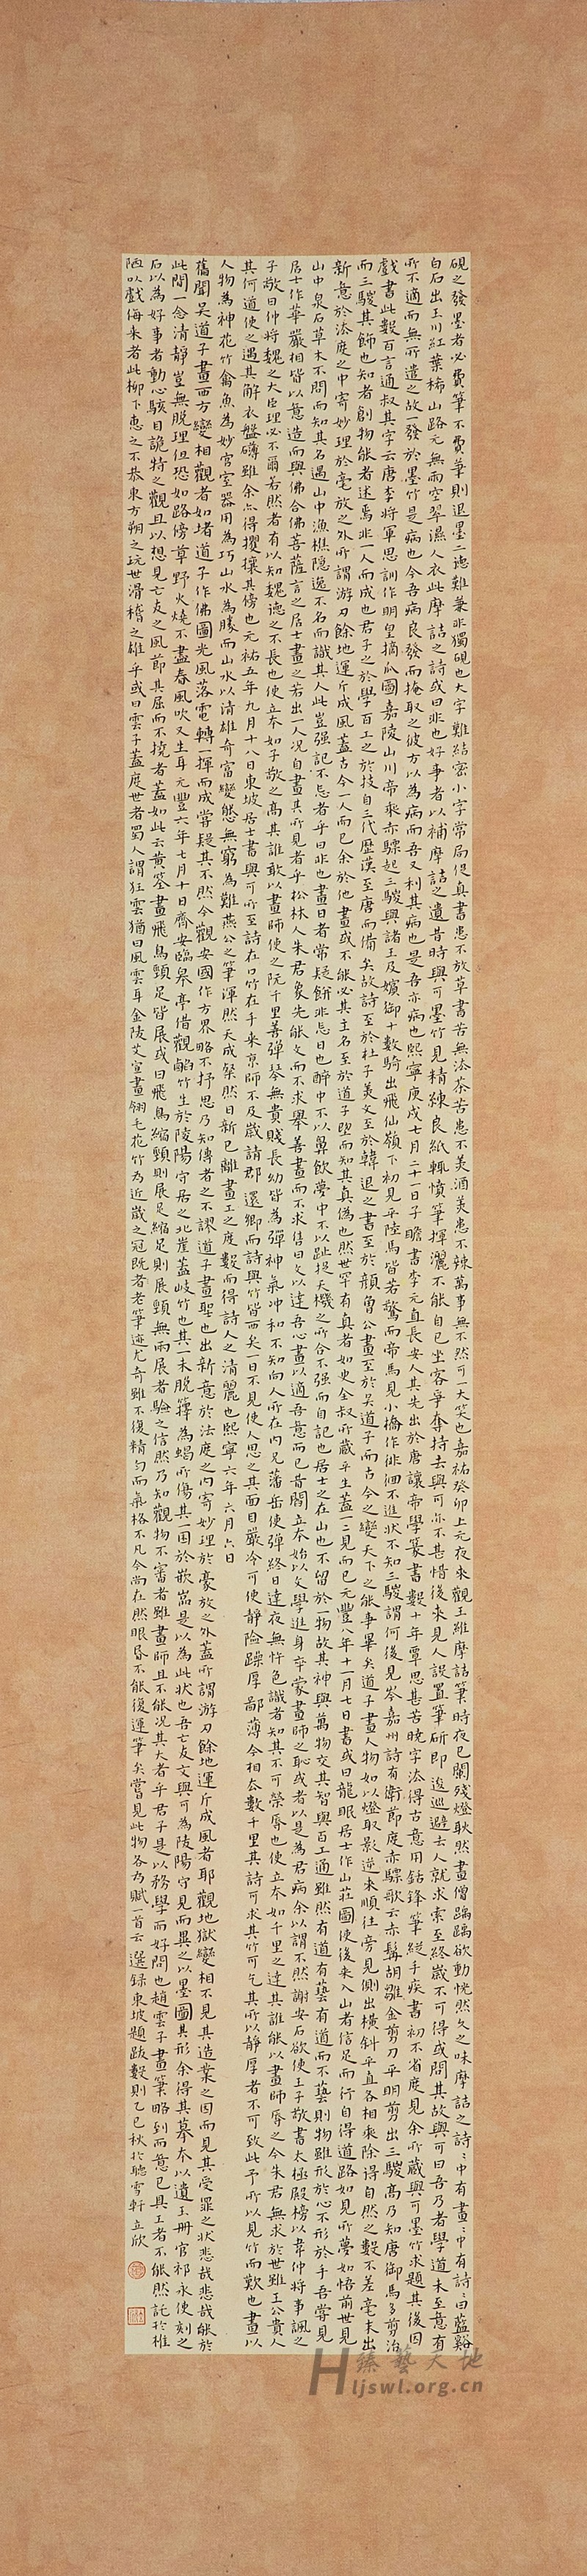 硯之發墨者必費筆不費筆則退墨二德難兼非獨硯也大字難結密小字常局促真書患不放草書苦無法茶苦患不美酒美患不辣萬事無不然可一大笑也嘉祐癸卯上元夜來觀王維摩詰筆時夜已闌殘燈耿然畫僧踽踽欲動恍然久之味摩詰之詩〻中有畫〻中有詩〻曰藍谿
白石出玉川紅葉稀山路元無雨空翠濕人衣此摩詰之詩或曰非也好事者以補摩詰之遺昔時與可墨竹見精縑良紙輒憤筆揮灑不能自已坐客爭奪持去與可亦不甚惜後來見人設置筆研即逡巡避去人就求索至終歲不可得或問其故與可曰吾乃者學道未至意有
所不適而無所遣之故一發於墨竹是病也今吾病良發而掩取之彼方以為病而吾又利其病也是吾亦病也熙寧庚戌七月二十一日子瞻書李元直長安人其先出於唐讓帝學篆書數十年覃思甚苦曉字法得古意用銛鋒筆縱手疾書初不省度見余所藏與可墨竹求題其後因
戲書此數百言通叔其字云唐李將軍思訓作明皇摘瓜圖嘉陵山川帝乘赤驃起三騣與諸王及嬪御十數騎出飛仙嶺下初見平陸馬皆若驚而帝馬見小橋作徘徊不進狀不知三騣謂何後見岑嘉州詩有衛節度赤驃歌云赤髯胡雛金剪刀平明剪出三騣高乃知唐御馬多剪治
而三騣其飾也知者創物能者述焉非一人而成也君子之於學百工之於技自三代歷漢至唐而備矣故詩至於杜子美文至於韓退之書至於顏魯公畫至於吳道子而古今之變天下之能事畢矣道子畫人物如以燈取影逆來順往旁見側出橫斜平直各相乘除得自然之數不差毫末出
新意於法度之中寄妙理於豪放之外所謂游刃餘地運斤成風蓋古今一人而已余於他畫或不能必其主名至於道子望而知其真偽也然世罕有真者如史全叔所藏平生蓋一二見而已元豐八年十一月七日書或曰龍眠居士作山莊圖使後來入山者信足而行自得道路如見所夢如悟前世見
山中泉石草木不問而知其名遇山中漁樵隱逸不名而識其人此豈強記不忘者乎曰非也畫日者常疑餅非忘日也醉中不以鼻飲夢中不以趾捉天機之所合不強而自記也居士之在山也不留於一物故其神與萬物交其智與百工通雖然有道有藝有道而不藝則物雖形於心不形於手吾嘗見
居士作華嚴相皆以意造而與佛合佛菩薩言之居士畫之若出一人況自畫其所見者乎松林人朱君象先能文而不求舉善畫而不求售曰文以達吾心畫以適吾意而已昔閻立本始以文學進身卒蒙畫師之恥或者以是為君病余以謂不然謝安石欲使王子敬書太極殿榜以韋仲將事諷之
子敬曰仲將魏之大臣理必不爾若然者有以知魏德之不長也使立本如子敬之高其誰敢以畫師使之阮千里善彈琴無貴賤長幼皆為彈神氣沖和不知向人所在內兄潘岳使彈終日達夜無忤色識者知其不可榮辱也使立本如千里之達其誰能以畫師辱之今朱君無求於世雖王公貴人
其何道使之遇其解衣盤礴雖余亦得攫攘其傍也元祐五年九月十八日東坡居士書與可所至詩在口竹在手來京師不及歲請郡還鄉而詩與竹皆西矣一日不見使人思之其面目嚴冷可使靜險躁厚鄙薄今相去數千里其詩可求其竹可乞其所以靜厚者不可致此予所以見竹而歎也畫以
人物為神花竹禽魚為妙宮室器用為巧山水為勝而山水以清雄奇富變態無窮為難燕公之筆渾然天成粲然日新已離畫工之度數而得詩人之清麗也熙寧六年六月六日
舊聞吳道子畫西方變相觀者如堵道子作佛圓光風落電轉一揮而成嘗疑其不然今觀安國作方界略不抒思乃知傳者之不謬道子畫聖也出新意於法度之內寄妙理於豪放之外蓋所謂游刃餘地運斤成風者耶觀地獄變相不見其造業之因而見其受罪之狀悲哉悲哉能於
此間一念清靜豈無脫理但恐如路傍草野火燒不盡春風吹又生耳元豐六年七月十日齊安臨皋亭借觀竹生於陵陽守居之北崖蓋歧竹也其一未脫籜為蝎所傷其一困於嵌嵓是以為此狀也吾亡友文與可為陵陽守見而異之以墨圖其形余得其摹本以遺玉冊官祁永使刻之
石以為好事者動心駭目詭特之觀且以想見亡友之風節其屈而不撓者蓋如此云黃筌畫飛鳥頸足皆展或曰飛鳥縮頸則展足縮足則展頸無兩展者驗之信然乃知觀物不審者雖畫師且不能況其大者乎君子是以務學而好問也趙雲子畫筆略到而意已具工者不能然託於椎
陋以戲侮來者此柳下惠之不恭東方朔之玩世滑稽之雄乎或曰雲子蓋度世者蜀人謂狂雲猶曰風雲耳金陵艾宣畫翎毛花竹為近歲之冠既老筆迹尤奇雖不復精勻而氣格不凡今尚在然眼昏不能復運筆矣嘗見此物各為賦一首云選録東坡題跋數則乙巳秋於聽雪軒立欣
臻藝天地
Hljswl.org.cn